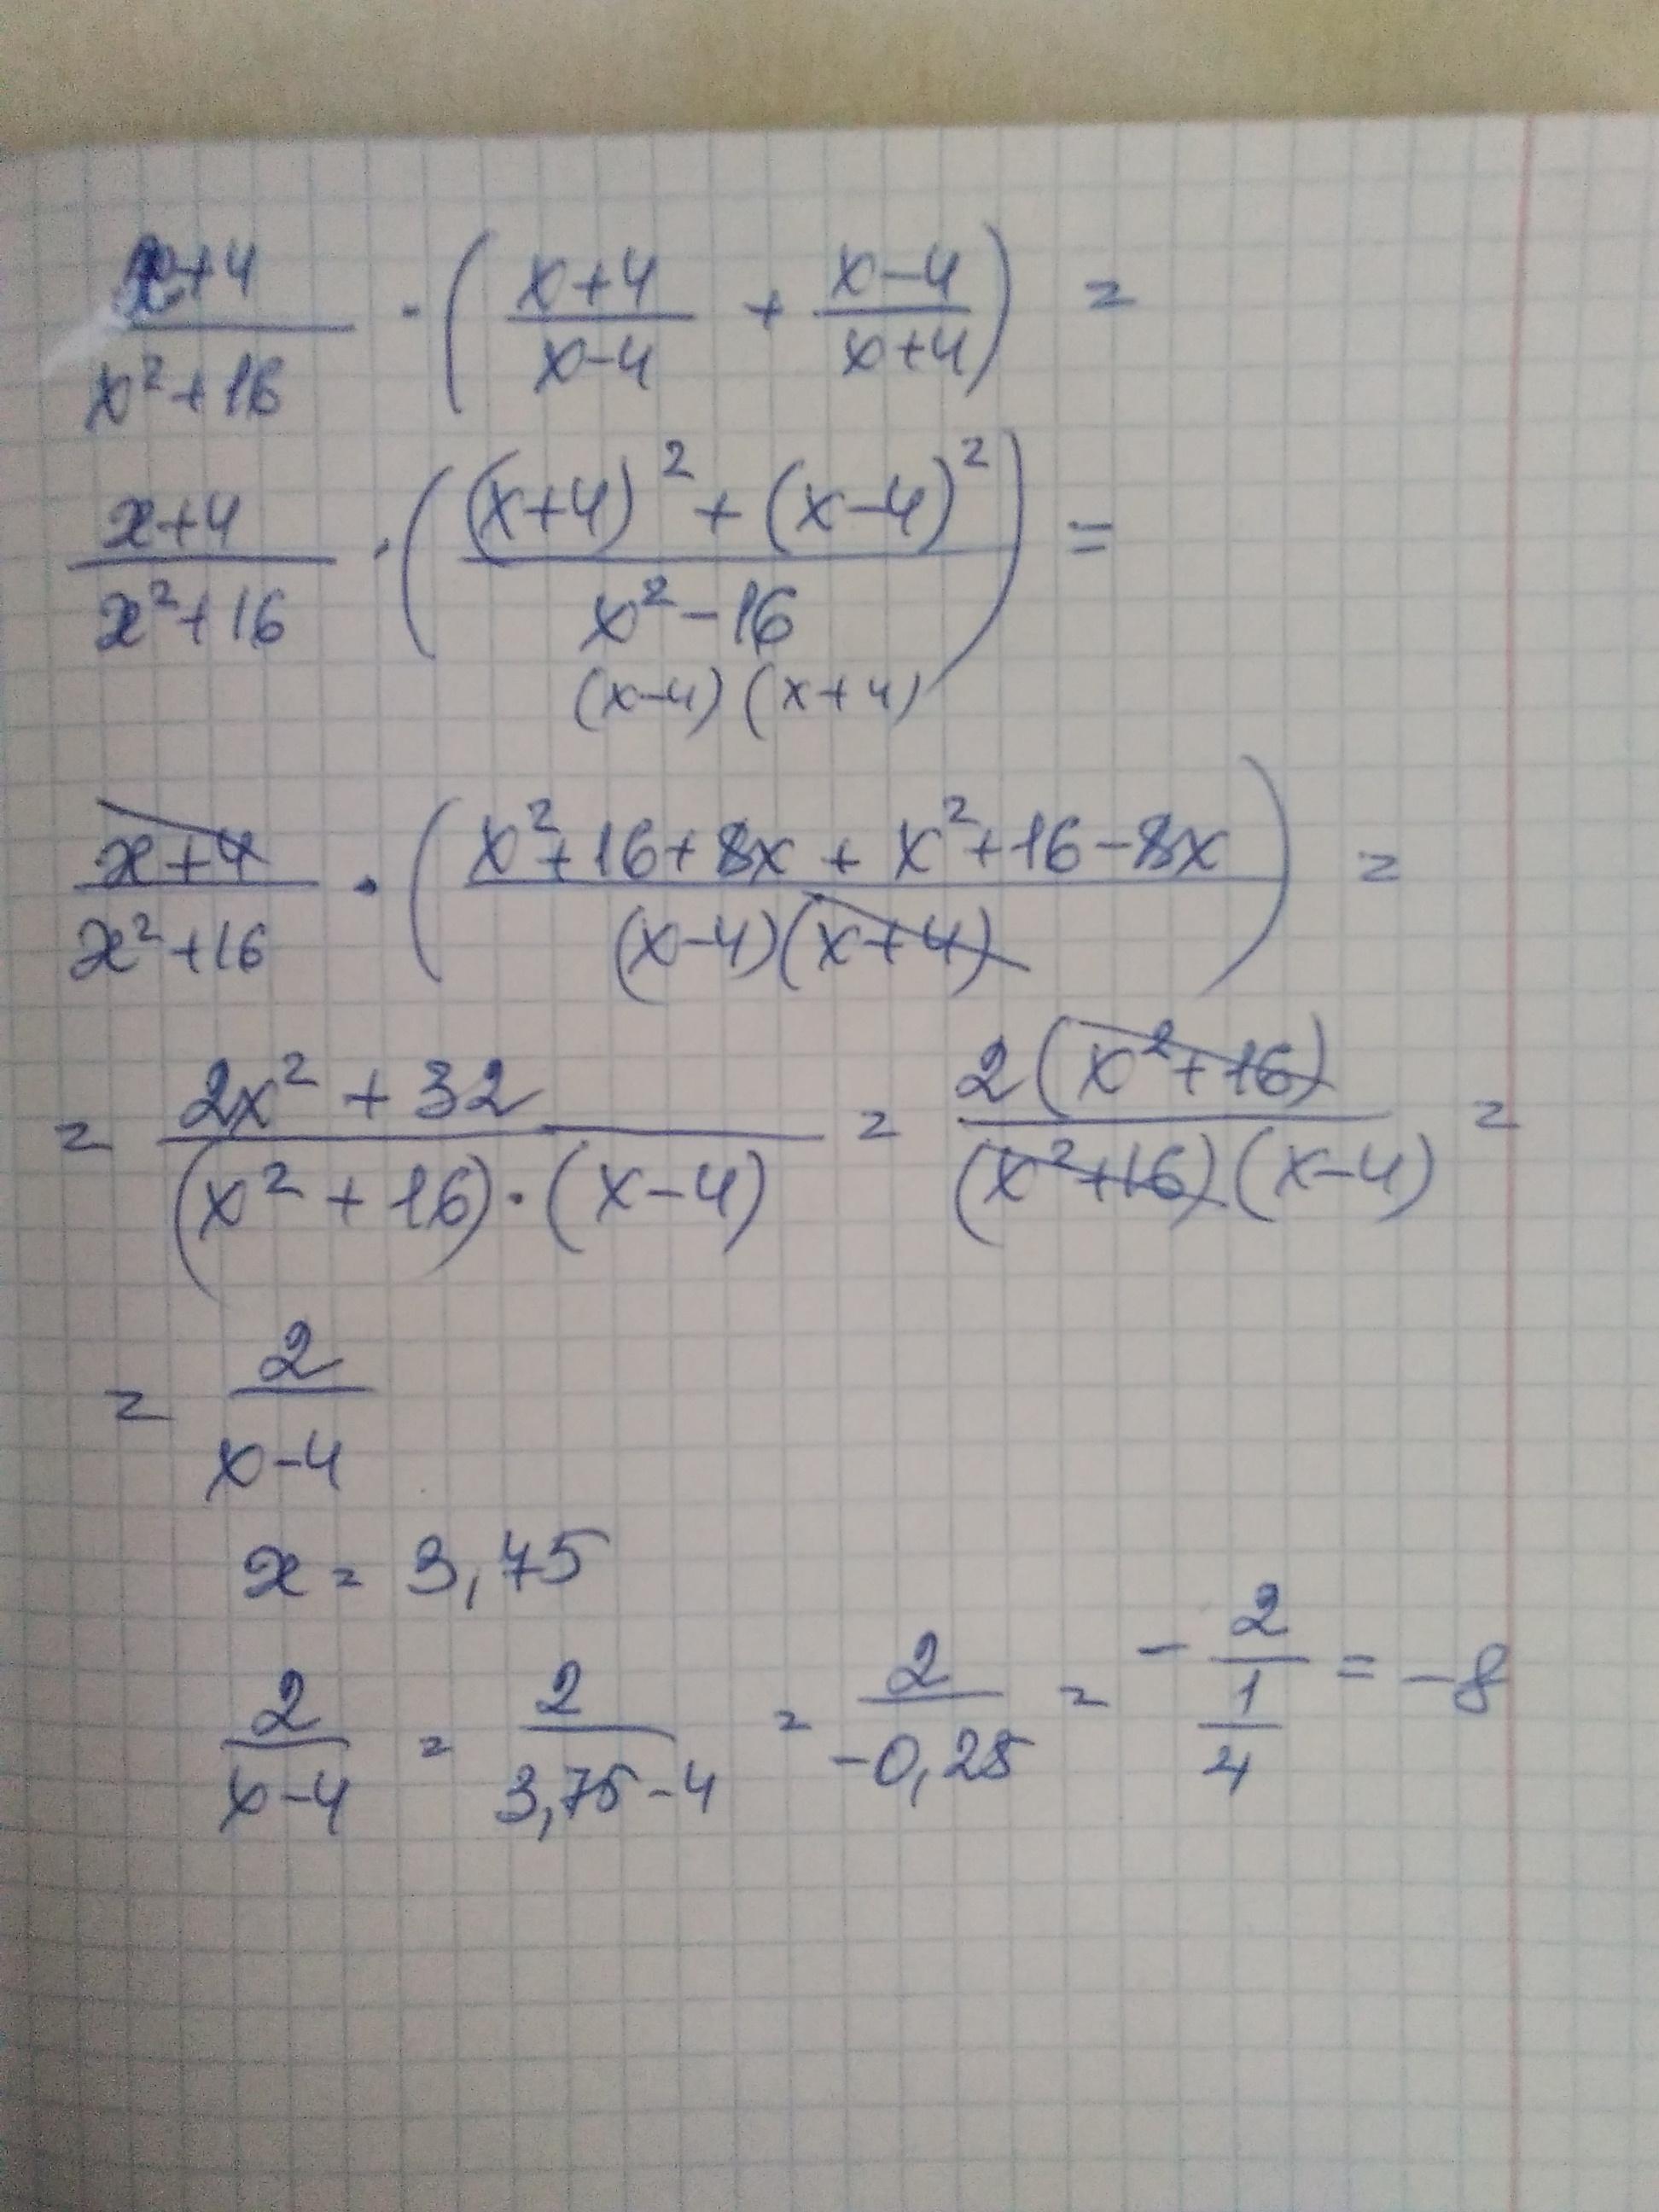 (x+4)/(x²+16) · ((x+4)/(x-4) + (x-4)/(x+4)) =
(x+4)/(x²+16) · (((x+4)² + (x-4)²)/(x²-16)) =
(x-4)(x+4)
(x+4)/(x²+16) · ((x²+16+8x+x²+16-8x)/((x-4)(x+4))) =
= (2x²+32)/((x²+16)·(x-4)) = 2(x²+16)/((x²+16)(x-4)) =
= 2/(x-4)
x = 3,75
2/(x-4) = 2/(3,75-4) = 2/(-0,25) = -2/(1/4) = -8